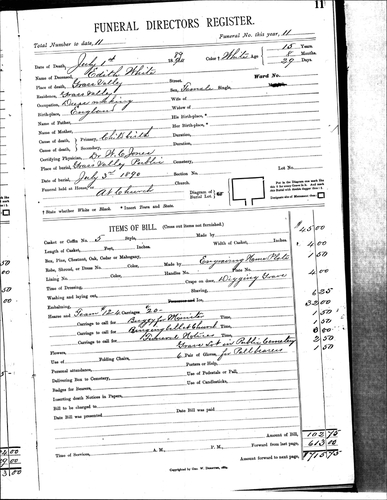 11
FUNERAL DIRECTORS REGISTER.
Total Number to date, 11 Funeral No. this year, 11
Date of Death, July 1st Color † White Age 15 Years
8 Months
29 Days
Name of Deceased, Edith White
Place of death, Grass Valley Street. Ward No.
Residence, Grass Valley Sex, Female Single,
Occupation, Dressmaking Wife of
Birth-place, England Widow of
Name of Father, His Birth-place, *
Name of Mother, Her Birth-place, *
Cause of death, Primary, Childbirth Duration,
Cause of death, Secondary, Duration,
Certifying Physician, Dr W. C. Jones
Place of burial, Grass Valley Public Cemetery, Lot No.
Date of burial, July 3rd 1890 Section No.
Funeral held at House, A & C Church Church. Diagram of Burial Lot
† State whether White or Black. * Insert Town and State.
ITEMS OF BILL. (Cross out items not furnished.)
Casket or Coffin No. 5 Style, Made by $ 45.00
Length of Casket, Feet, Inches. Width of Casket, Inches.
Box, Pine, Chestnut, Oak, Cedar or Mahogany, Made by 4 00
Robe, Shroud, or Dress No. Color, Engraving Name Plate 1 50
Lining No. Color, Handles No. Plate No. 4 00
Time of Dressing, Crape on door, Digging Grave
Washing and laying out, Shaving 6 25
Embalming,
Hearse and Team #12 & Carriages #20 - 32 00
Carriage to call for Buggy for Minister 1 50
Carriage to call for Ringing bell at Church 1 50
Carriage to call for Funeral Notices
Flowers, Grave Lot in Public Cemetery 2 50
Use of Folding Chairs, 6 Pair of Gloves, for Pallbearers 1 50
Personal attendance, Porters or Help,
Delivering Box to Cemetery, Use of Pedestals or Pall,
Badges for Bearers, Use of Candlesticks,
Inserting death Notices in Papers,
Bill to be charged to
Date Bill was presented Date Bill was paid
Amount of Bill, 102 75
Forward from last page, 613 00
Time of Services, A. M., P. M., Carry forward to next page, $715 75